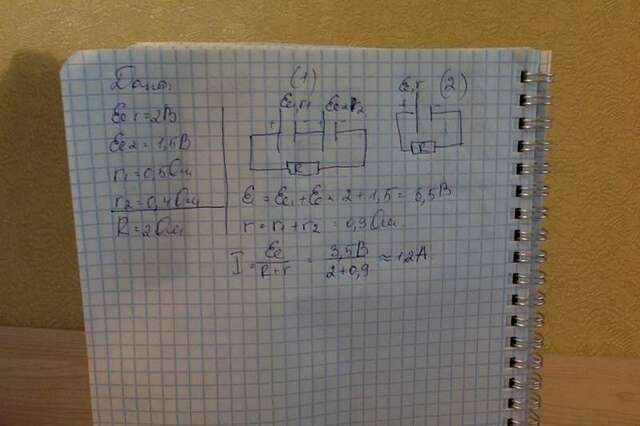 Дано:
Ɛ1 = 2В
Ɛ2 = 1,5В
r1 = 0,5Ом
r2 = 0,4Ом
R = 2Ом
(1)
Ɛ1, r1 Ɛ2 r2
+ - + -
R
Ɛ, r (2)
+ -
R
Ɛ = Ɛ1 + Ɛ2 = 2 + 1,5 = 3,5В
r = r1 + r2 = 0,9Ом
I = Ɛ/(R + r) = 3,5В/(2 + 0,9) ≈ 1,2А